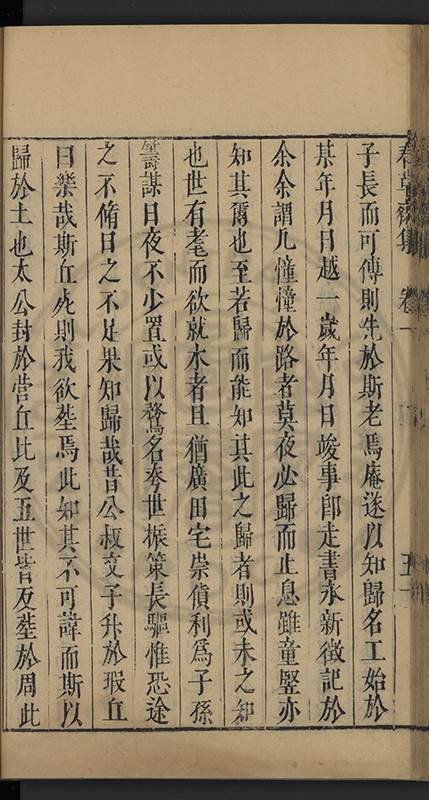 春草齋集 卷一
子長而可傳則先於斯老焉庵遂以知歸名工始於
某年月日越一歲年月日竣事卽走書永新徵記於
余余謂凡憧憧於路者莫夜必歸而止息雖童豎亦
知其爾也至若歸而能知其此之歸者則或未之知
也世有耄而欲就木者且猶廣田宅崇債利爲子孫
籌謀日夜不少置或以騖名夸世振策長驅惟恐途
之不脩日之不足果知歸哉昔公叔文子升於瑕丘
曰樂哉斯丘死則我欲塟焉此知其不可諱而斯以
歸於土也太公封於營丘比及五世皆反塟於周此